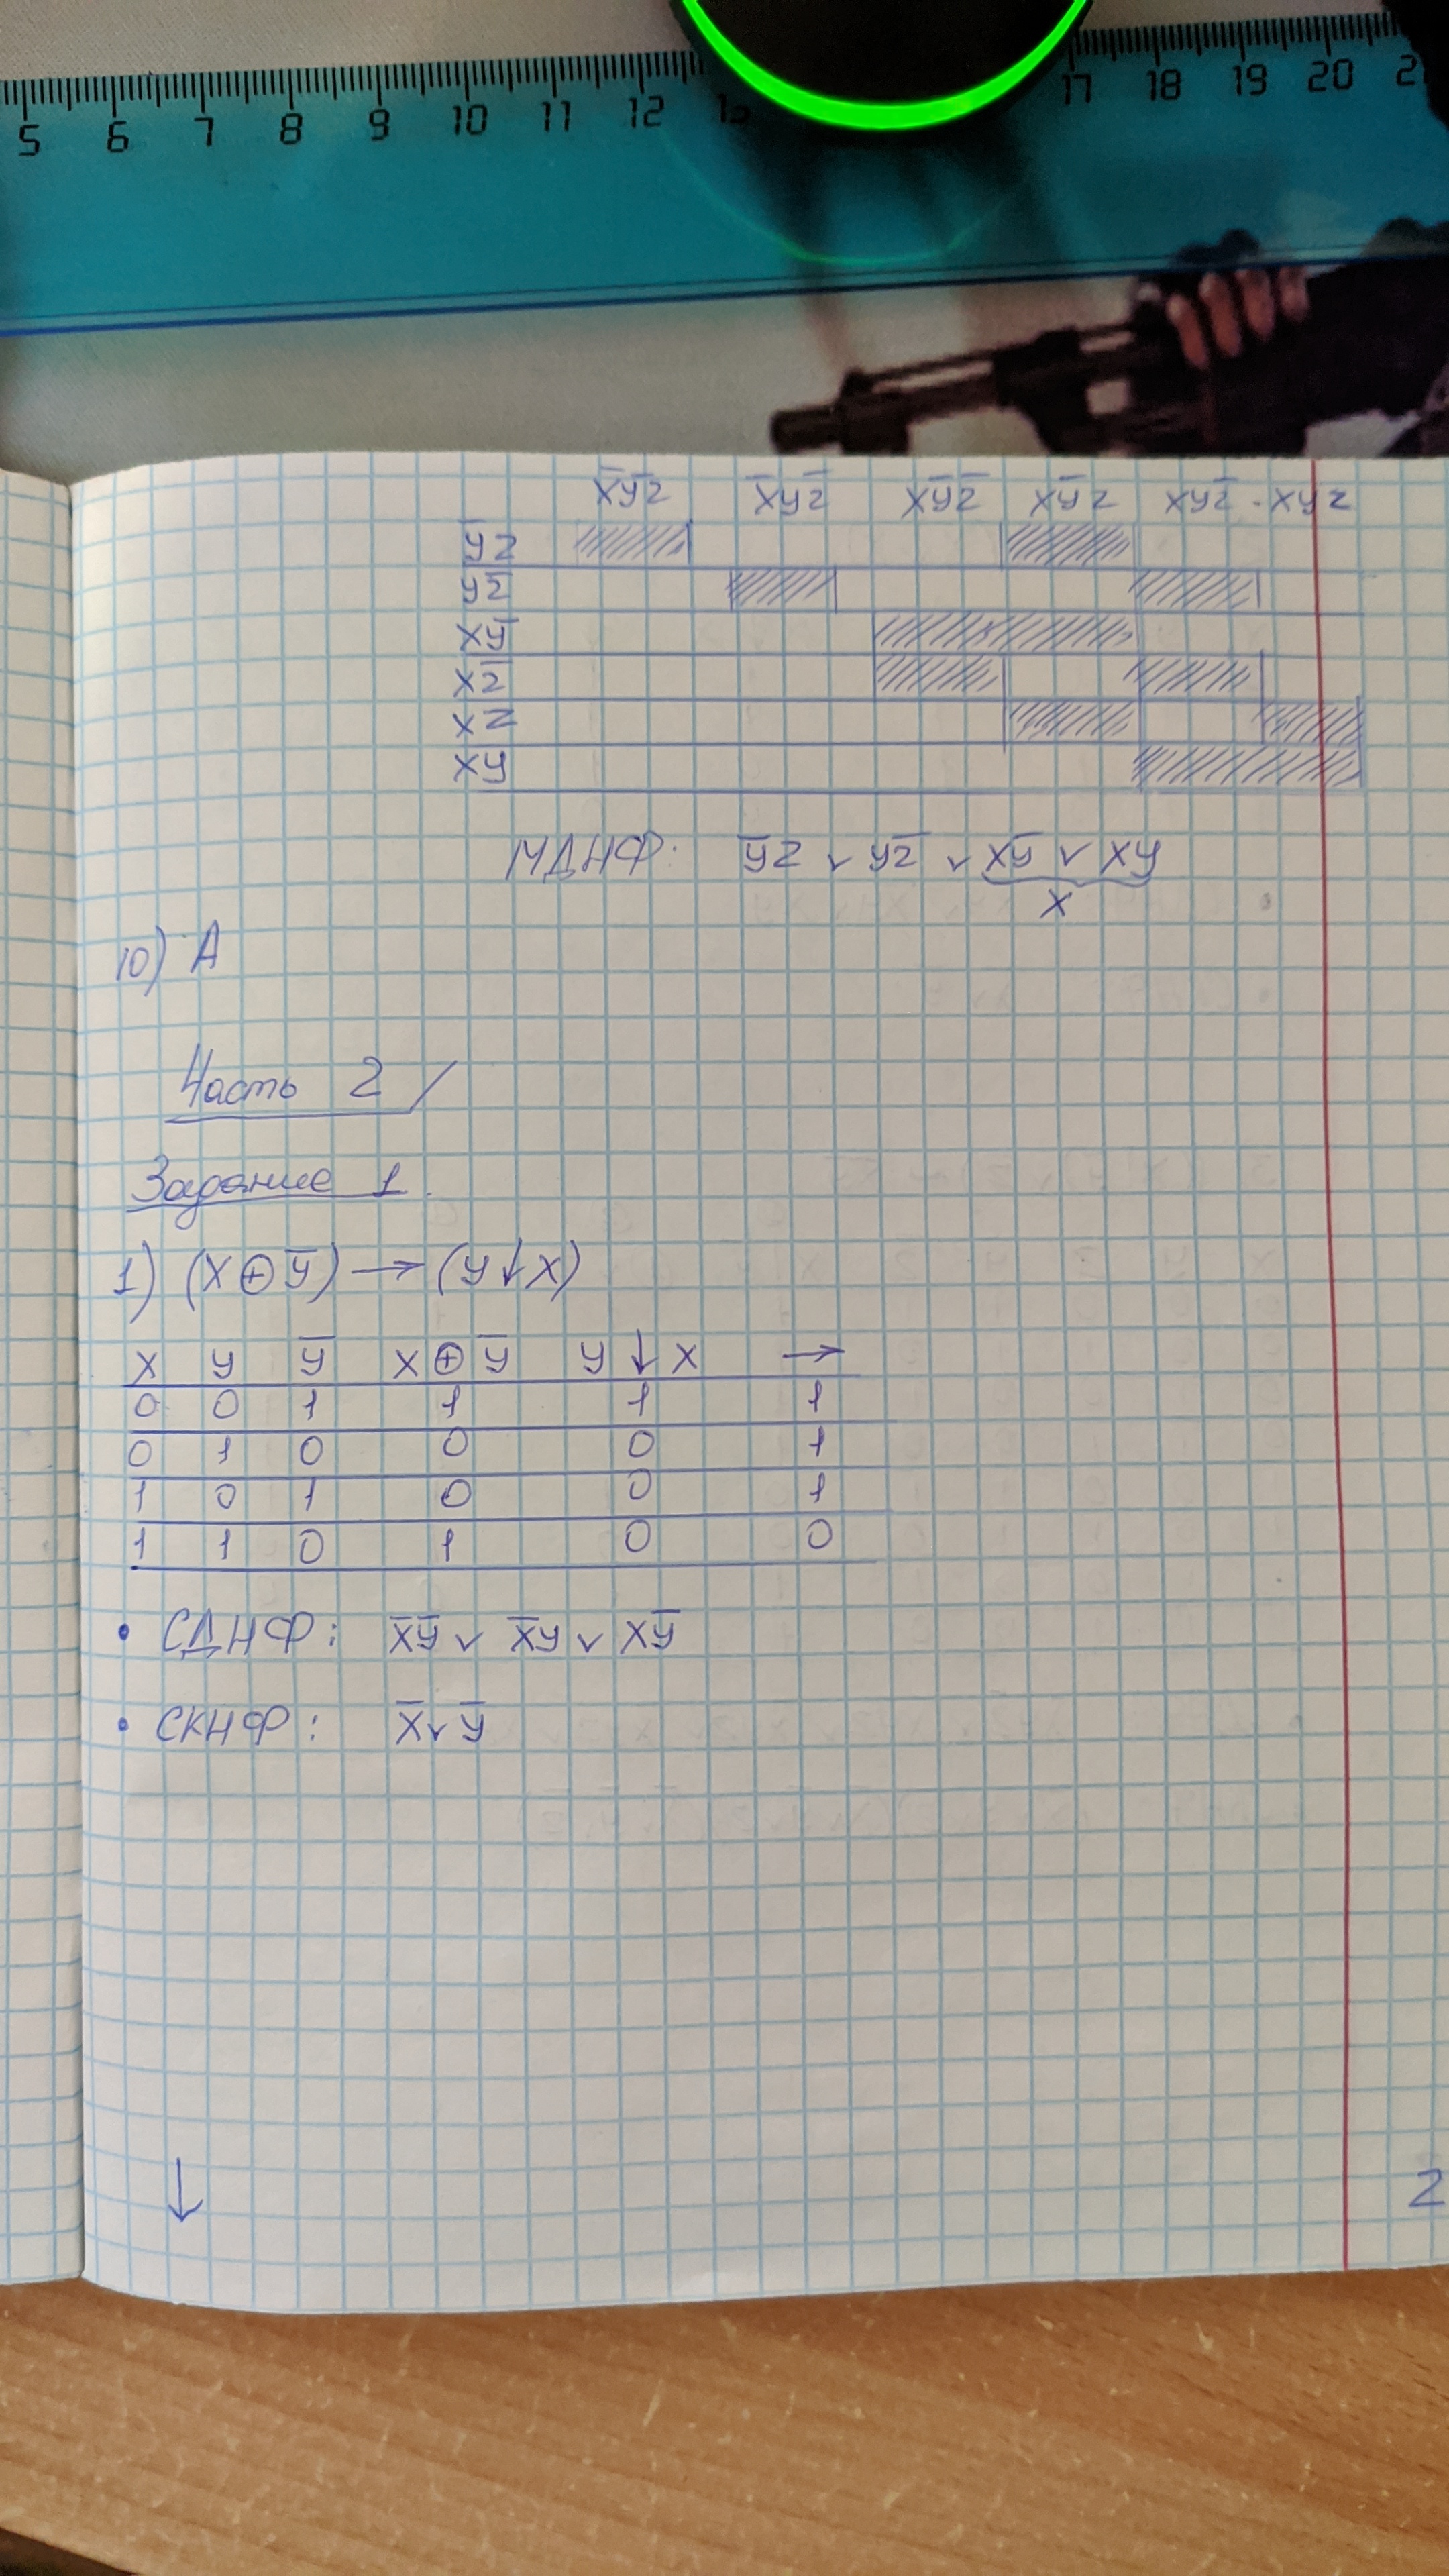 5 6 7 8 9 10 11 12 17 18 19 20
x̄ȳz x̄yz̄ xȳz̄ xȳz xyz̄ - xyz
ȳz
yz̄
xȳ
xz̄
xz
xy
МДНФ: ȳz ∨ yz̄ ∨ xȳ ∨ xy
x
10) А
Часть 2
Задание 1.
1) (x ⊕ ȳ) → (y ↓ x)
x y ȳ x ⊕ ȳ y ↓ x →
0 0 1 1 1 1
0 1 0 0 0 1
1 0 1 0 0 1
1 1 0 1 0 0
• СДНФ: x̄ȳ ∨ x̄y ∨ xȳ
• СКНФ: x̄ ∨ ȳ
↓
2